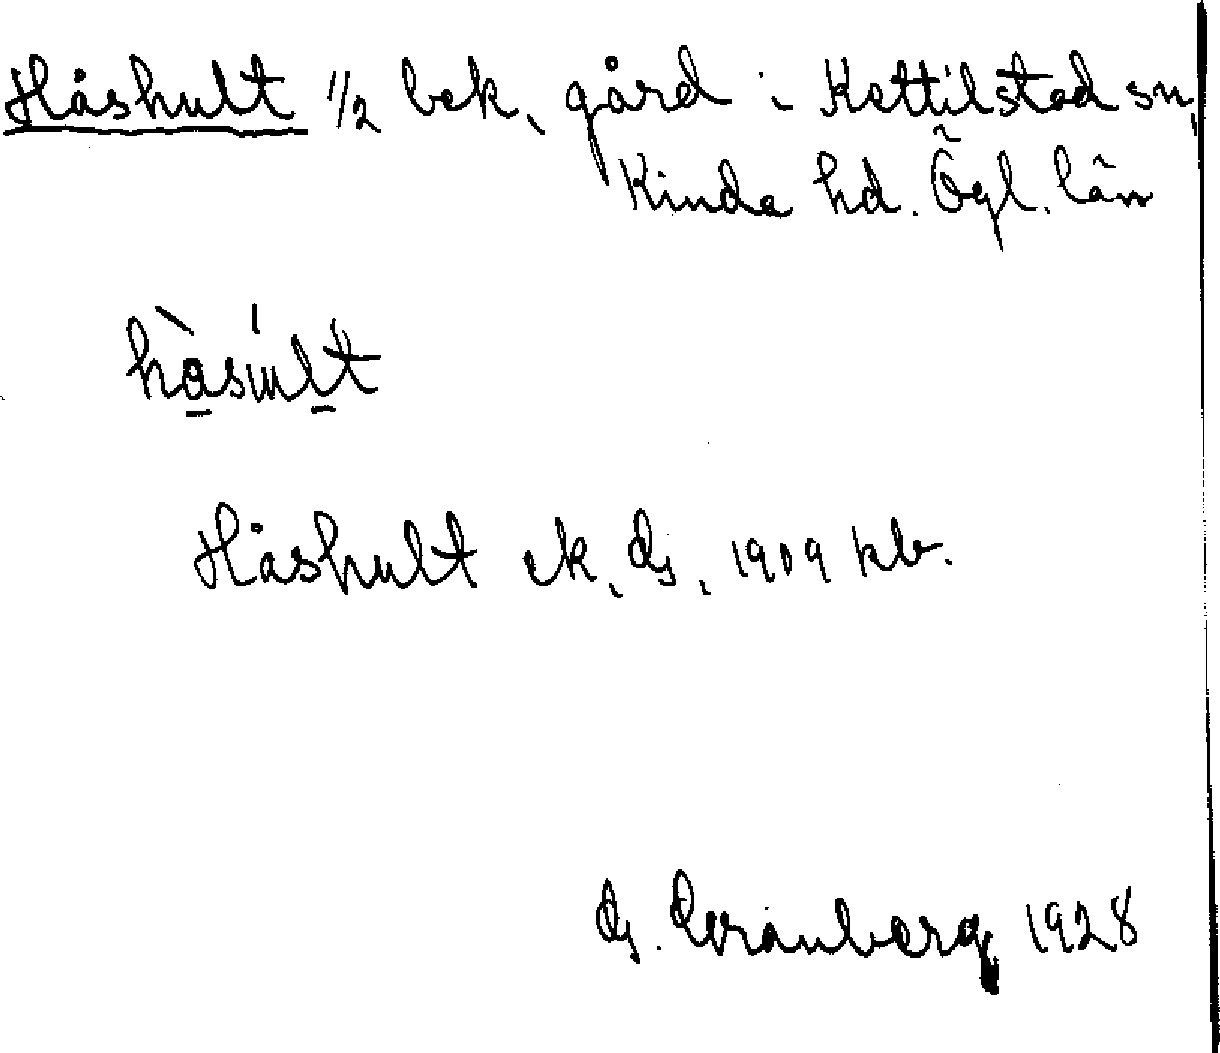 Håshult 1/2 bek, gård i Kettilstad sn,
Kinda hd. Ögl. län
Håshult ek, ds, 1909 kb.
G. Granberg 1928